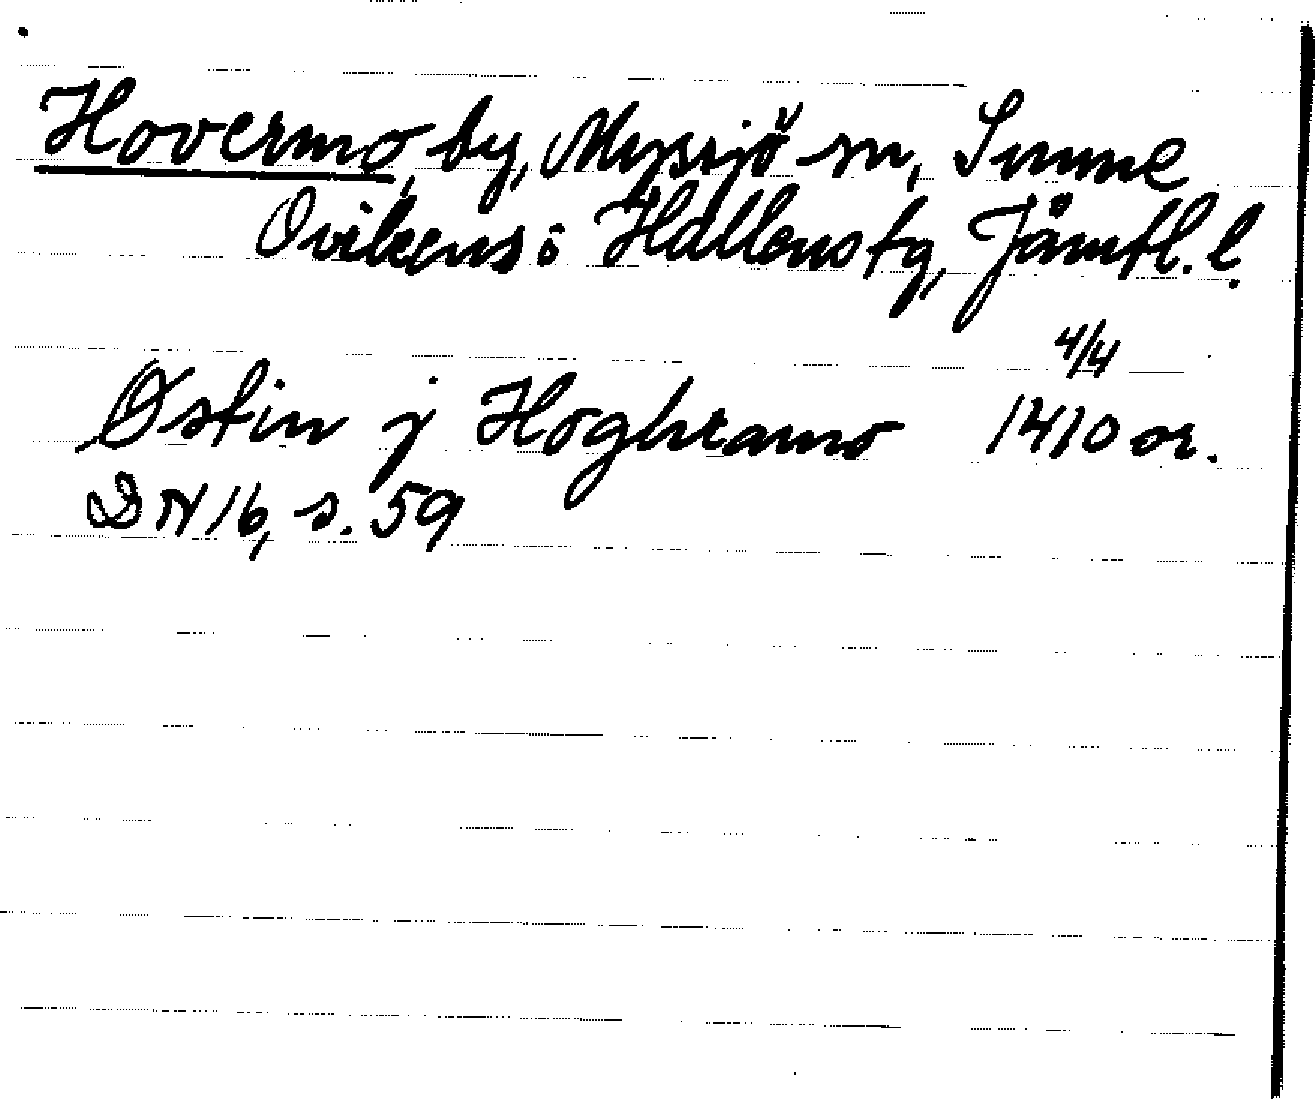 Hovermo, by, Myssjö sn, Sunne
Ovikens o Hallens tg, Jämtl. l.
4/4
Østin j Høghramo 1410 or.
DN 16, s. 59